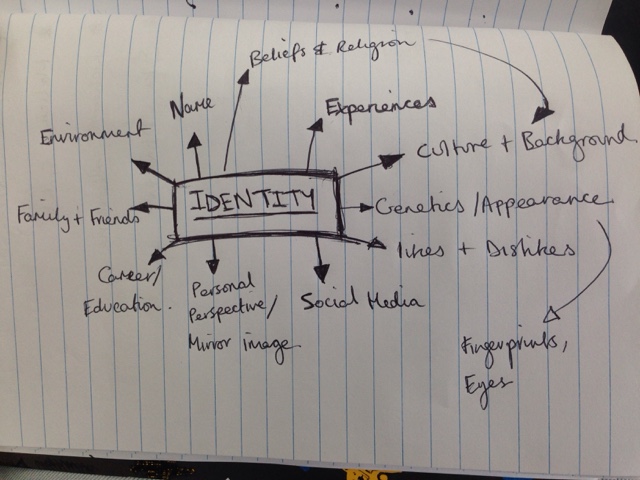 Beliefs & Religion
Name
Experiences
Environment
Culture + Background
IDENTITY
Family + Friends
Genetics / Appearance
likes + Dislikes
Career/
Education.
Personal
Perspective/
Mirror image.
Social Media
Fingerprints,
Eyes